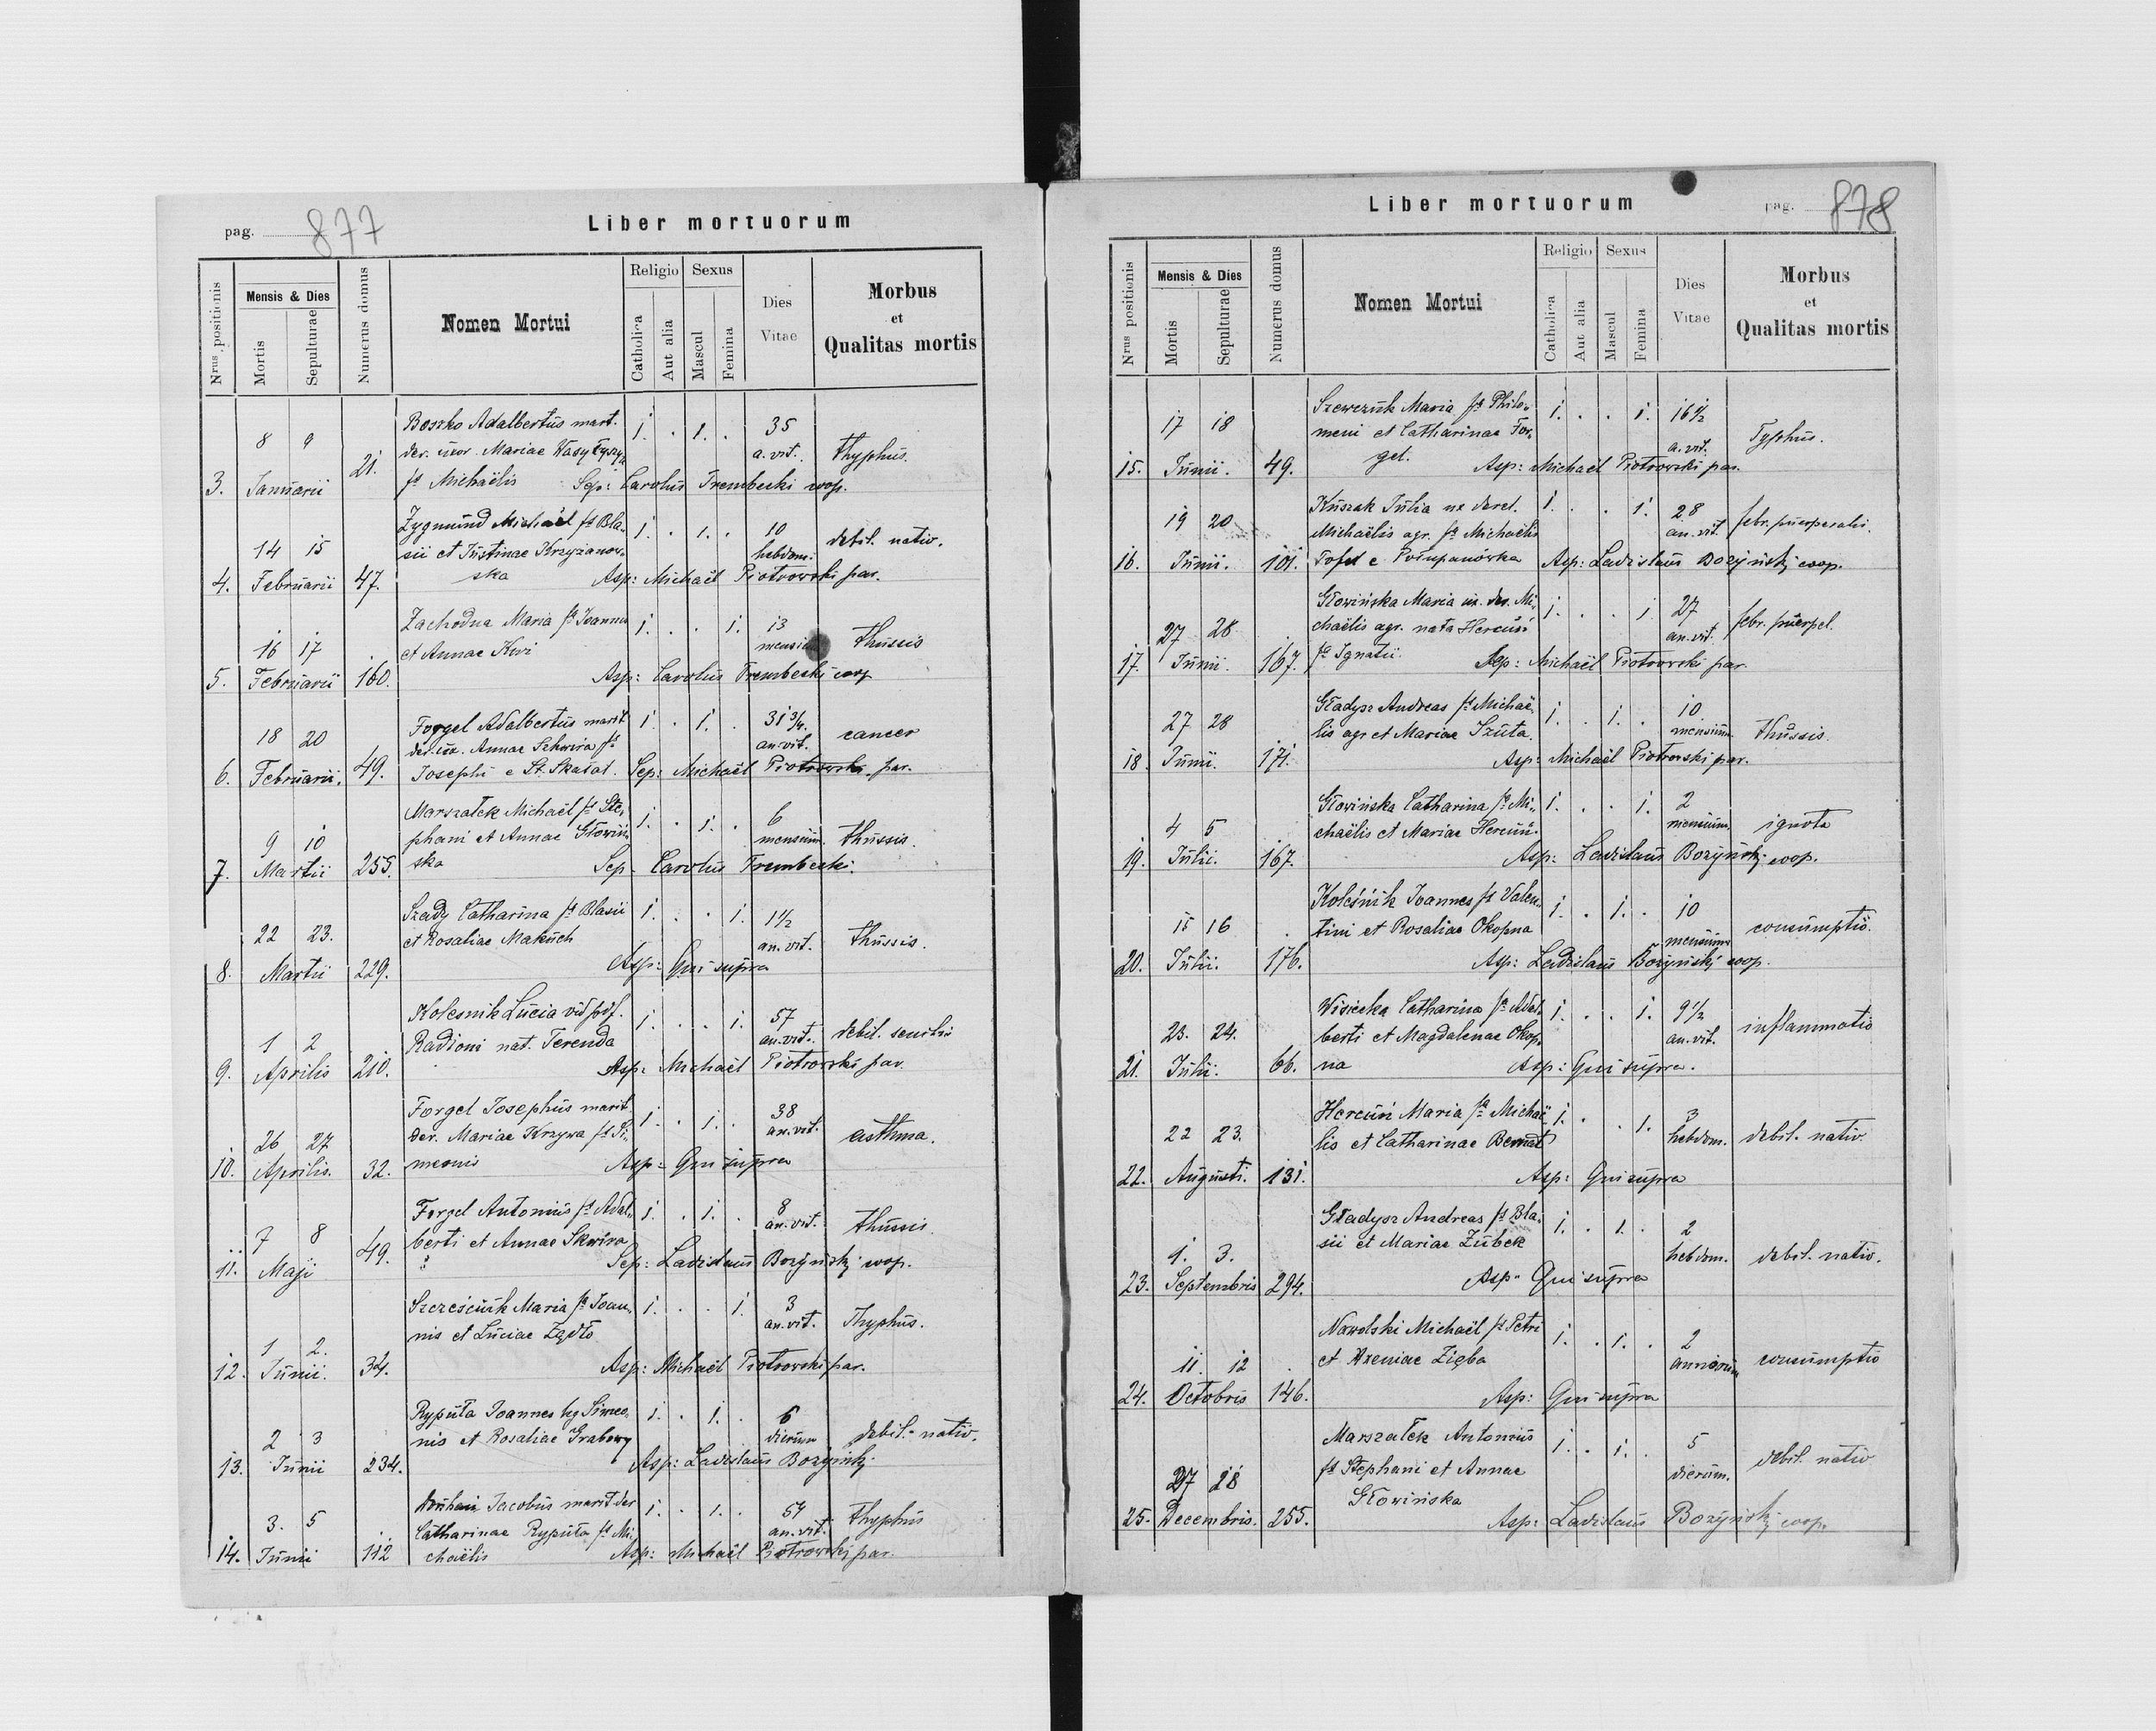 pag. 877
Liber mortuorum
Nrus positionis
Mensis & Dies
Mortis
Sepulturae
Numerus domus
Nomen Mortui
Religio
Catholica
Aut alia
Sexus
Mascul
Femina
Dies Vitae
Morbus
et
Qualitas mortis
8 9 Boszko Adalbertus marit. 1. . 1. . 35
21. der. uxor. Mariae a. vit. thyphus.
3. Januarii fs Michaëlis Sep: Carolus Trembecki coop.
Zygmund Michaël fs Bla- 1. . 1. . 10 debil. nativ.
14 15 sii et Justinae Krzyżanow- hebdom.
4. Februarii 47. ska Asp: Michaël Piotrowski par.
Zachodna Maria fa Joannis 1. . . 1. 13
16 17 et Annae Kwi thussis
5. Februarii 160. Asp: Carolus Trembecki coop
18 20 Forgel Adalbertus marit 1. . 1. . 31 3/4 cancer
der. ux. Annae Skwira fs an. vit.
6. Februarii. 49. Josephi e St. Skałat. Sep: Michaël Piotrowski par.
Marszałek Michaël fs Ste- 1. . 1. . 6
9 10 phani et Annae Głowiń- mensium thussis.
7. Martii 255. ska Sep. Carolus Trembecki.
Szady Catharina fa Blasii 1. . . 1. 1 1/2
22 23. et Rosaliae Makuch an. vit. thussis.
8. Martii 229. Asp: Qui supra
Kolesnik Lucia vid. 1. . . 1. 57
1 2 Radioni nat. Ferenda an. vit. debil. senilis
9. Aprilis 210. Asp: Michaël Piotrowski par.
Forgel Josephus marit. 1. . 1. . 38
26 27 der. Mariae Krzywa fs Si- an. vit. asthma.
10. Aprilis. 32. meonis Asp: Qui supra
Forgel Antonius fs Adal- 1. . 1. . 8
7 8 berti et Annae Skwira an. vit. thussis
11. Maji 49. Sep: Ladislaus Bożyński coop.
Szcześciuk Maria fa Joan- 1. . . 1. 3
1 2. nis et Luciae Żądło an. vit. Thyphus.
12. Junii. 34. Asp: Michaël Piotrowski par.
Ryputa Joannes lg Simeo- 1. . 1. . 6
2 3 nis et Rosaliae Grabowy dierum debil. nativ.
13. Junii 234. Asp: Ladislaus Bożyński
Jacobus marit der 1. . 1. . 54
3. 5 Catharinae Ryputa fs Mi- an. vit. thyphus
14. Junii 112 chaëlis Asp: Michaël Piotrowski par.
pag. 878
Liber mortuorum
Nrus positionis
Mensis & Dies
Mortis
Sepulturae
Numerus domus
Nomen Mortui
Religio
Catholica
Aut alia
Sexus
Mascul
Femina
Dies Vitae
Morbus
et
Qualitas mortis
Szewczuk Maria fa Philo- 1. . . 1. 16 1/2
17 18 meni et Catharinae For- a. vit. Typhus.
15. Junii. 49. gel. Asp: Michaël Piotrowski par.
Kuszak Julia ux derel. 1. . . 1. 28
19 20 Michaëlis agr. fa Michaëlis an. vit. febr. puerperalis.
16. Junii. 101. e Połupanówka Asp: Ladislaus Bożyński coop.
Głowińska Maria ux. der. Mi- 1. . . 1 27
27 28 chaëlis agr. nata Hercuń an. vit. febr. puerpel.
17. Junii. 167. fa Ignatii. Sep: Michaël Piotrowski par.
Gładysz Andreas fs Michaë- 1. . 1. . 10
27 28 lis agr et Mariae Szuta. mensium thussis.
18. Junii. 171. Asp: Michaël Piotrowski par.
Głowińska Catharina fa Mi- 1. . . 1. 2
4 5 chaëlis et Mariae Hercuń. mensium. ignota
19. Julii. 167. Asp: Ladislaus Bożyński coop.
Koleśnik Joannes fs Valen- 1. . 1. . 10
15 16 tini et Rosaliae Okopna mensium consumptio.
20. Julii. 176. Asp: Ladislaus Bożyński coop.
Wisiecka Catharina fa Adal- 1. . . 1. 9 1/2
23. 24. berti et Magdalenae Okop- an. vit. inflammatio
21. Julii. 66. na Asp: Qui supra.
Hercuń Maria fa Michaë- 1. . . 1. 3
22 23. lis et Catharinae Bernat hebdom. debil. nativ.
22. Augusti. 131. Asp: Qui supra
Gładysz Andreas fs Bla- 1. . 1. . 2
1. 3. sii et Mariae Zubek hebdom. debil. nativ.
23. Septembris 294. Asp: Qui supra
Nawolski Michaël fs Petri 1. . 1. . 2
11. 12 et Xeniae Zięba annorum consumptio
24. Octobris 146. Asp: Qui supra
Marszałek Antonius 1. . 1. . 5
27 28 fs Stephani et Annae dierum. debil. nativ
Głowińska
25. Decembris. 255. Asp: Ladislaus Bożyński coop.